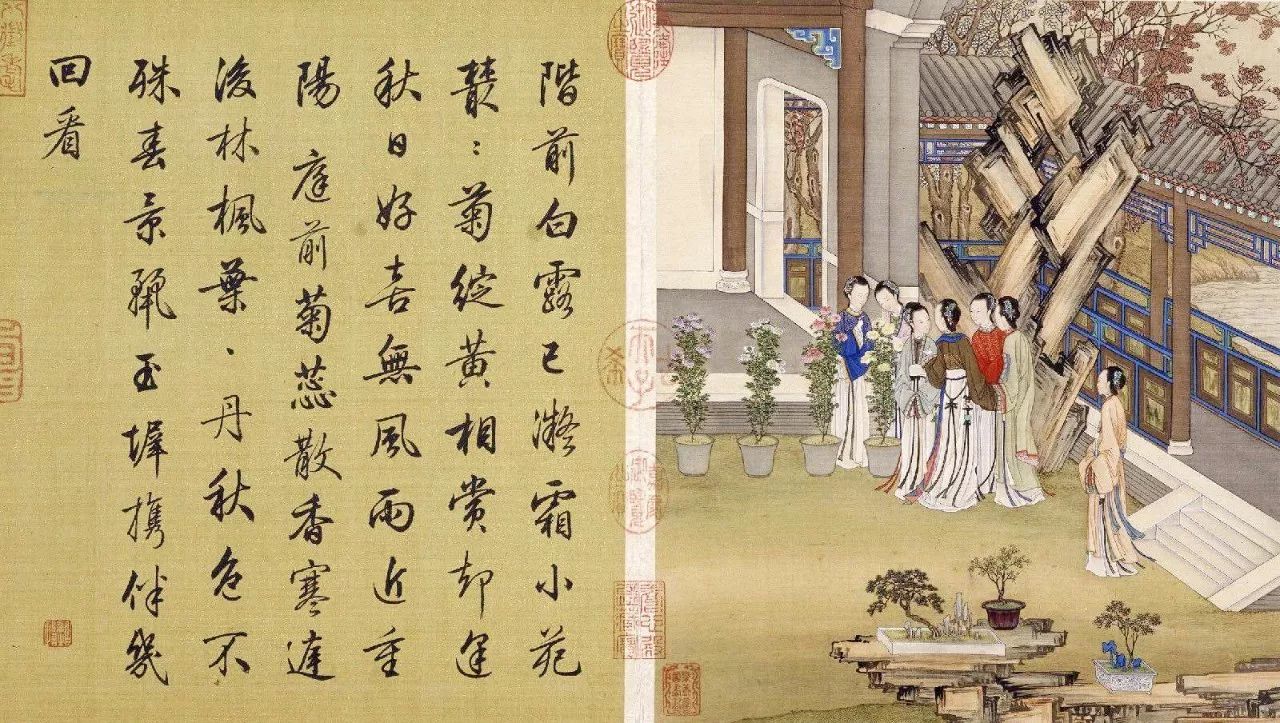 階前白露已凝霜小苑
叢〻菊綻黃相賞却逢
秋日好喜無風雨近重
陽 庭前菊蕊散香寒
林楓葉〻丹秋色不
殊春景麗玉墀携伴幾
回看